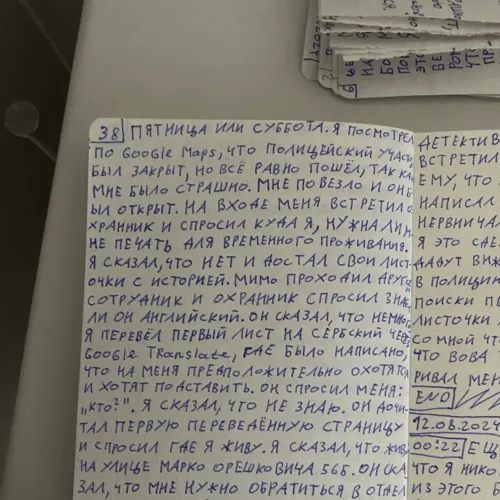 38 ПЯТНИЦА ИЛИ СУББОТА. Я ПОСМОТРЕЛ
ПО GOOGLE MAPS, ЧТО ПОЛИЦЕЙСКИЙ УЧАСТ
БЫЛ ЗАКРЫТ, НО ВСЁ РАВНО ПОШЁЛ, ТАК КА
МНЕ БЫЛО СТРАШНО. МНЕ ПОВЕЗЛО И ОН Б
ЫЛ ОТКРЫТ. НА ВХОДЕ МЕНЯ ВСТРЕТИЛ О
ХРАННИК И СПРОСИЛ КУДА Я, НУЖНА ЛИ М
НЕ ПЕЧАТЬ ДЛЯ ВРЕМЕННОГО ПРОЖИВАНИЯ.
Я СКАЗАЛ, ЧТО НЕТ И ДОСТАЛ СВОИ ЛИСТ
ОЧКИ С ИСТОРИЕЙ. МИМО ПРОХОДИЛ ДРУГО
СОТРУДНИК И ОХРАННИК СПРОСИЛ ЗНАЕ
ЛИ ОН АНГЛИЙСКИЙ. ОН СКАЗАЛ, ЧТО НЕМНОГО
Я ПЕРЕВЁЛ ПЕРВЫЙ ЛИСТ НА СЕРБСКИЙ ЧЕРЕЗ
GOOGLE TRANSLATE, ГДЕ БЫЛО НАПИСАНО,
ЧТО НА МЕНЯ ПРЕДПОЛОЖИТЕЛЬНО ОХОТЯТСЯ
И ХОТЯТ ПОДСТАВИТЬ. ОН СПРОСИЛ МЕНЯ:
„КТО?". Я СКАЗАЛ, ЧТО НЕ ЗНАЮ. ОН ДОЧИ
ТАЛ ПЕРВУЮ ПЕРЕВЕДЁННУЮ СТРАНИЦУ
И СПРОСИЛ ГДЕ Я ЖИВУ. Я СКАЗАЛ, ЧТО ЖИВУ
НА УЛИЦЕ МАРКО ОРЕШКОВИЧА 56Б. ОН СКА
ЗАЛ, ЧТО МНЕ НУЖНО ОБРАТИТЬСЯ В ОТДЕЛ
ДЕТЕКТИВ
ВСТРЕТИЛ
ЕМУ, ЧТО
НАПИСАЛ
НЕРВНИЧАЛ
Я ЭТО СДЕ
ДАДУТ ВИЖ
В ПОЛИЦИЮ
ПОИСКИ ПЕ
ЛИСТОЧКИ
СО МНОЙ ЧТ
ЧТО ВОВА
РИВАЛ МЕН
END
12.08.2024
00:22 ЕЩ
ЧТО Я НИКО
ИЗ ЭТОГО